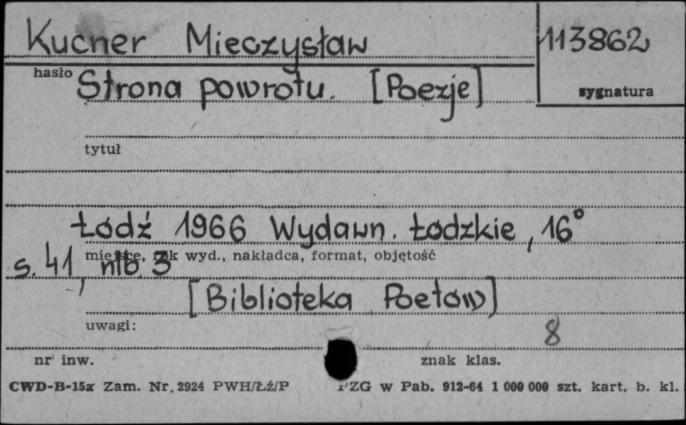 Kucner Mieczysław
113862
hasło
Strona powrotu. [Poezje]
sygnatura
tytuł
Łódź 1966 Wydawn. Łódzkie, 16°
miejsce, rok wyd., nakładca, format, objętość
s. 41, nlb. 3
[Biblioteka Poetów]
uwagi:
8
nr inw.
znak klas.
CWD-B-15a Zam. Nr. 2924 PWH/Łź/P
PZG w Pab. 912-64 1 000 000 szt. kart. b. kl.